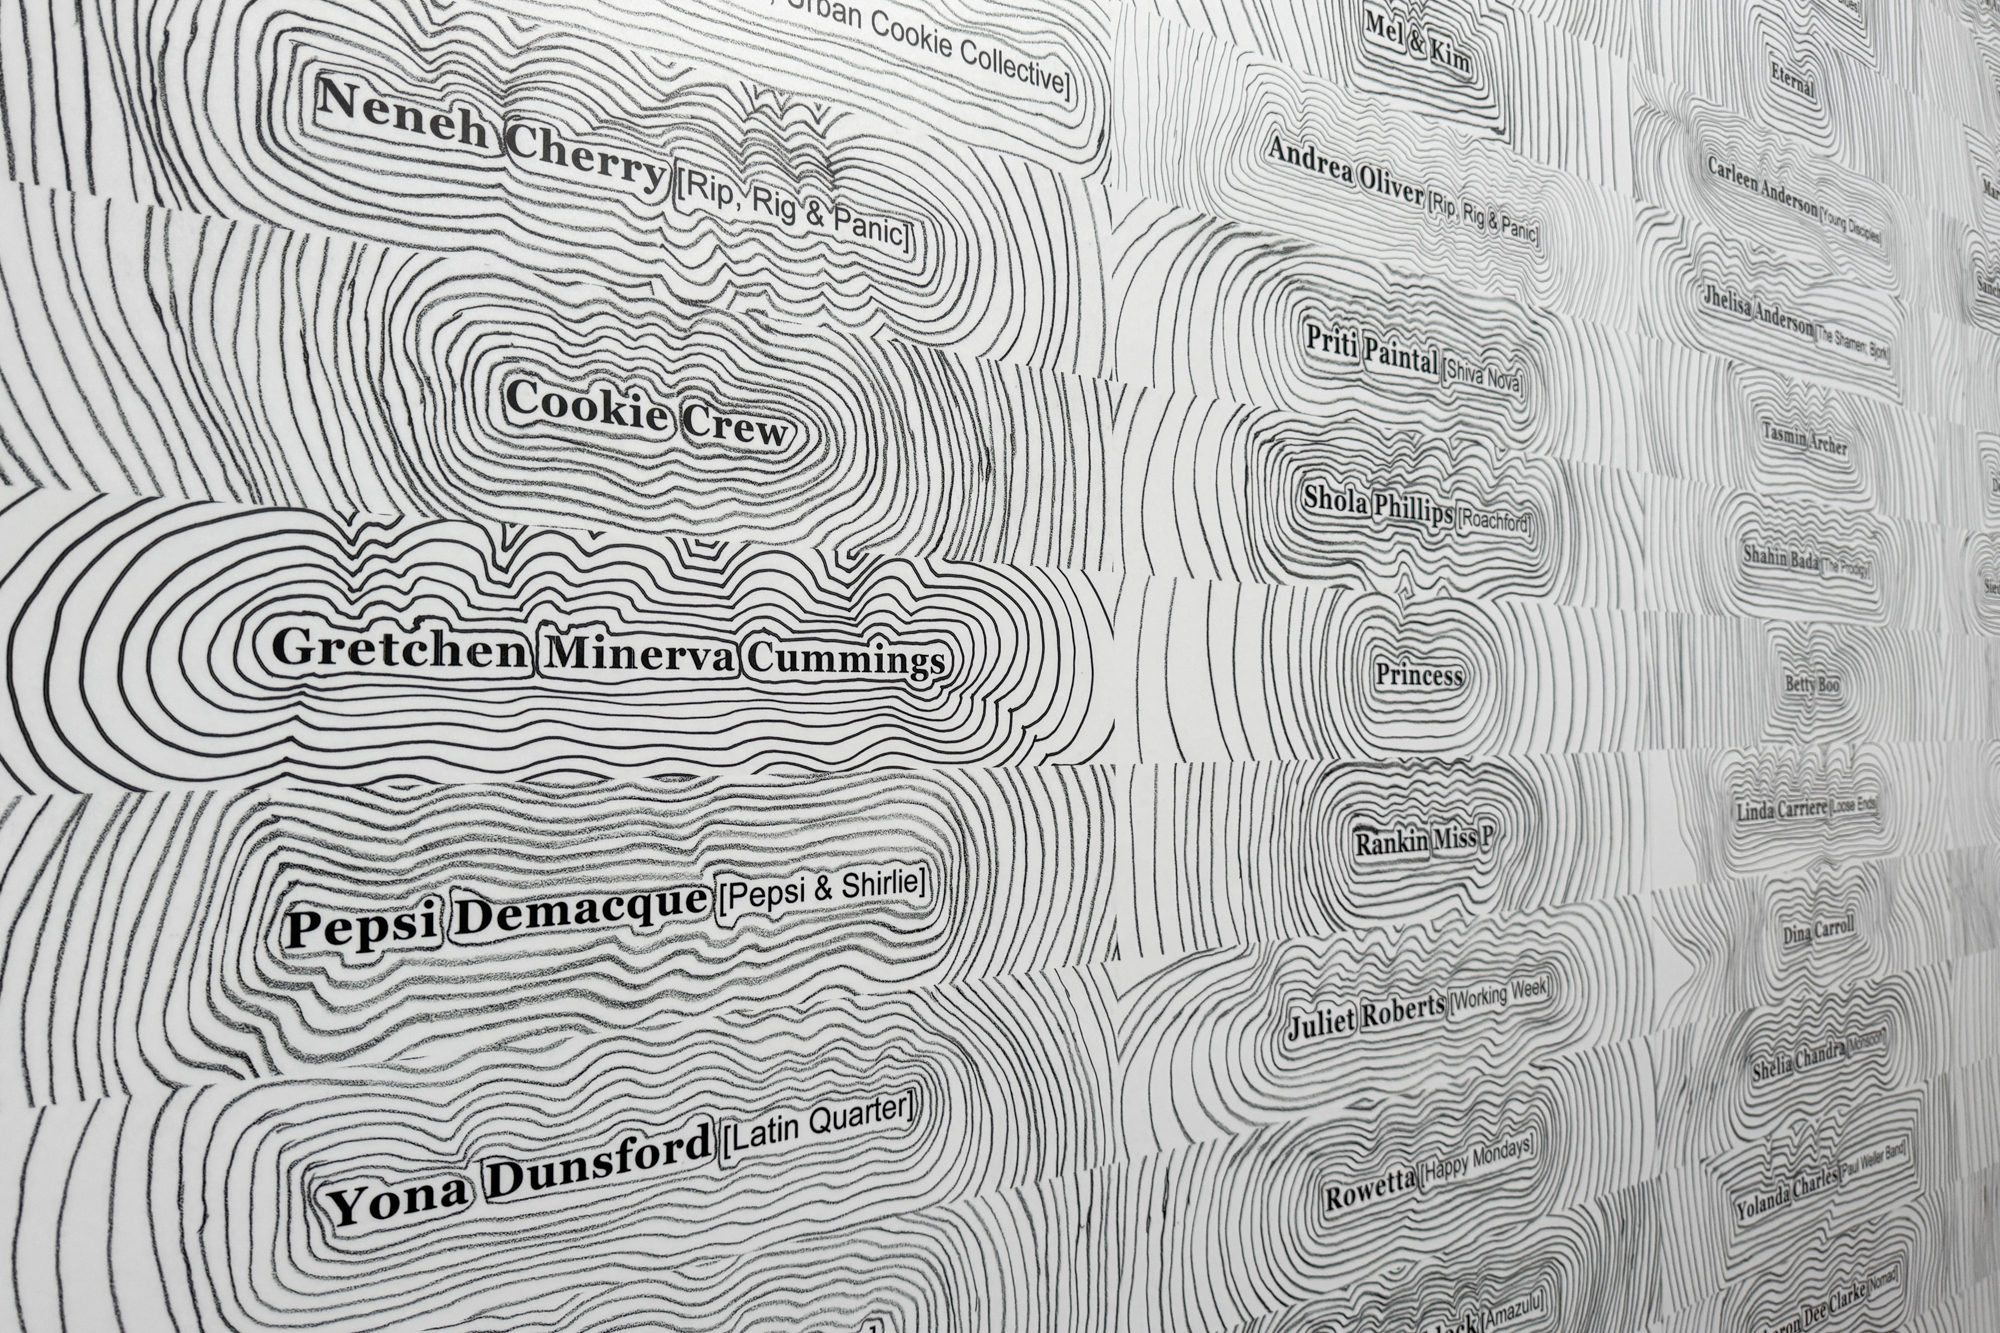 Urban Cookie Collective]
Neneh Cherry [Rip, Rig & Panic]
Cookie Crew
Gretchen Minerva Cummings
Pepsi Demacque [Pepsi & Shirlie]
Yona Dunsford [Latin Quarter]
Mel & Kim
Andrea Oliver [Rip, Rig & Panic]
Priti Paintal [Shiva Nova]
Shola Phillips [Roachford]
Princess
Rankin Miss P
Juliet Roberts [Working Week]
Rowetta [Happy Mondays]
[Amazulu]
Eternal
Carleen Anderson [Young Disciples]
Jhelisa Anderson [The Shamen; Bjork]
Tasmin Archer
Shahin Bada [The Prodigy]
Betty Boo
Linda Carriere [Loose Ends]
Dina Carroll
Shelia Chandra [Monsoon]
Yolanda Charles [Paul Weller Band]
Dee Clarke [Nomad]